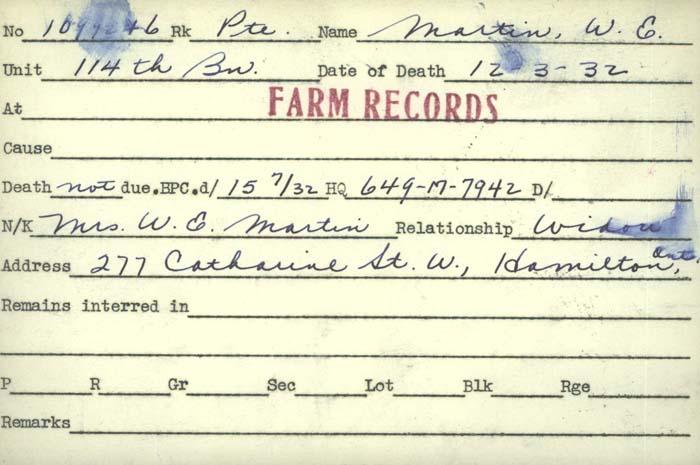 No 1099246 Rk Pte. Name Martin, W. E.
Unit 114th Bn. Date of Death 12 3-32
At FARM RECORDS
Cause
Death not due.BPC.d/ 15 7/32 HQ 649-M-7942 D/
N/K Mrs. W. E. Martin Relationship Widow
Address 277 Catharine St. W., Hamilton, Ont.
Remains interred in
P R Gr Sec Lot Blk Rge
Remarks